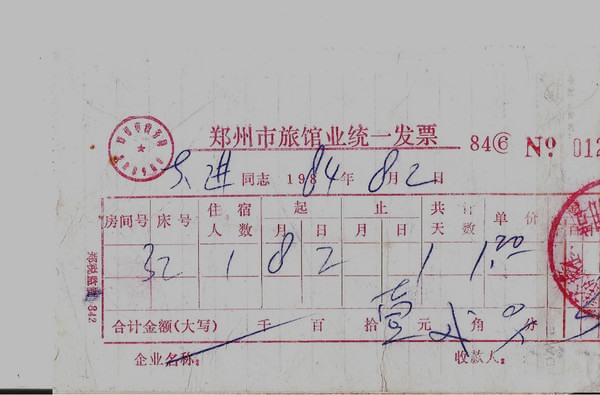 郑州市旅馆业统一发票 84⑥ No 012
进 同志 1984年8月2日
房间号 床号 住宿人数 起 月 日 止 月 日 共计天数 单价
32 1 8 2 1 1.20
合计金额(大写) 千 百 拾 壹 元 贰 角 0 分
企业名称: 收款人:
842